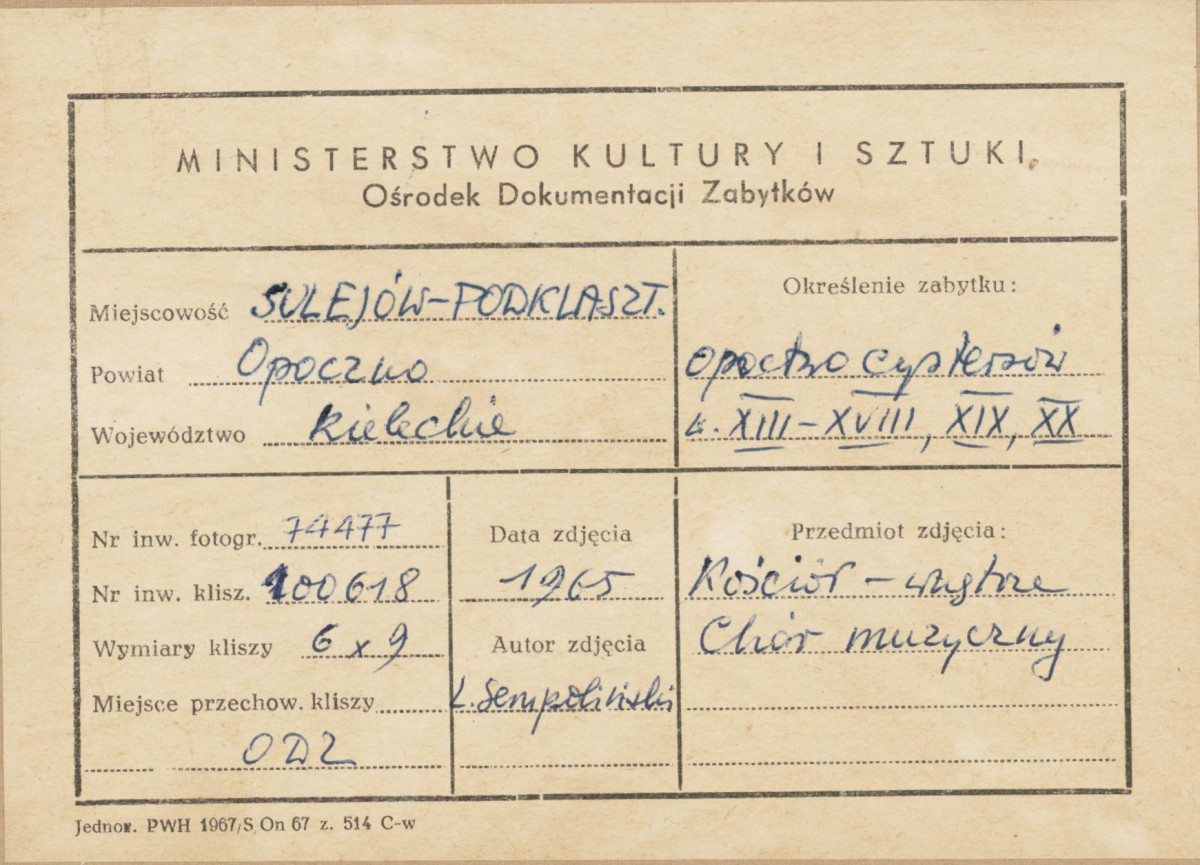 MINISTERSTWO KULTURY I SZTUKI
Ośrodek Dokumentacji Zabytków
Miejscowość SULEJÓW-PODKLASZT.
Powiat Opoczno
Województwo kieleckie
Określenie zabytku:
opactwo cystersów
w. XIII-XVIII, XIX, XX
Nr inw. fotogr. 74477
Nr inw. klisz. 100618
Wymiary kliszy 6 x 9
Miejsce przechow. kliszy
ODZ
Data zdjęcia
1965
Autor zdjęcia
L. Sempoliński
Przedmiot zdjęcia:
Kościół - wnętrze
Chór muzyczny
Jednor. PWH 1967/S On 67 z. 514 C-w